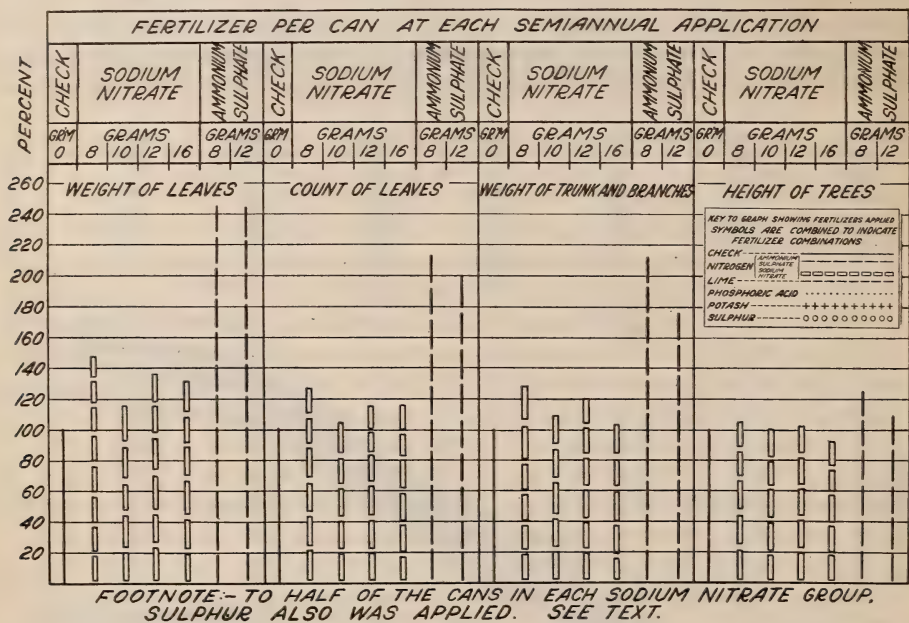 FERTILIZER PER CAN AT EACH SEMIANNUAL APPLICATION
PERCENT
CHECK SODIUM NITRATE AMMONIUM SULPHATE CHECK SODIUM NITRATE AMMONIUM SULPHATE CHECK SODIUM NITRATE AMMONIUM SULPHATE CHECK SODIUM NITRATE AMMONIUM SULPHATE
GRM GRAMS GRAMS GRM GRAMS GRAMS GRM GRAMS GRAMS GRM GRAMS GRAMS
0 8 10 12 16 8 12 0 8 10 12 16 8 12 0 8 10 12 16 8 12 0 8 10 12 16 8 12
WEIGHT OF LEAVES COUNT OF LEAVES WEIGHT OF TRUNK AND BRANCHES HEIGHT OF TREES
260
240
220
200
180
160
140
120
100
80
60
40
20
KEY TO GRAPH SHOWING FERTILIZERS APPLIED
SYMBOLS ARE COMBINED TO INDICATE
FERTILIZER COMBINATIONS
CHECK
NITROGEN AMMONIUM SULPHATE
SODIUM NITRATE
LIME
PHOSPHORIC ACID
POTASH
SULPHUR
FOOTNOTE:- TO HALF OF THE CANS IN EACH SODIUM NITRATE GROUP,
SULPHUR ALSO WAS APPLIED. SEE TEXT.